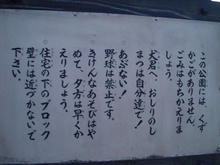 この公園には、くず
かごがありません。
ごみはもちかえりま
しょう。
犬君へ、おしりのし
まつは自分達で!
あぶない!
野球は禁止です。
きけんなあそびはや
めて、夕方は早くか
えりましょう。
住宅の下のブロック
壁には近づかないで
下さい。